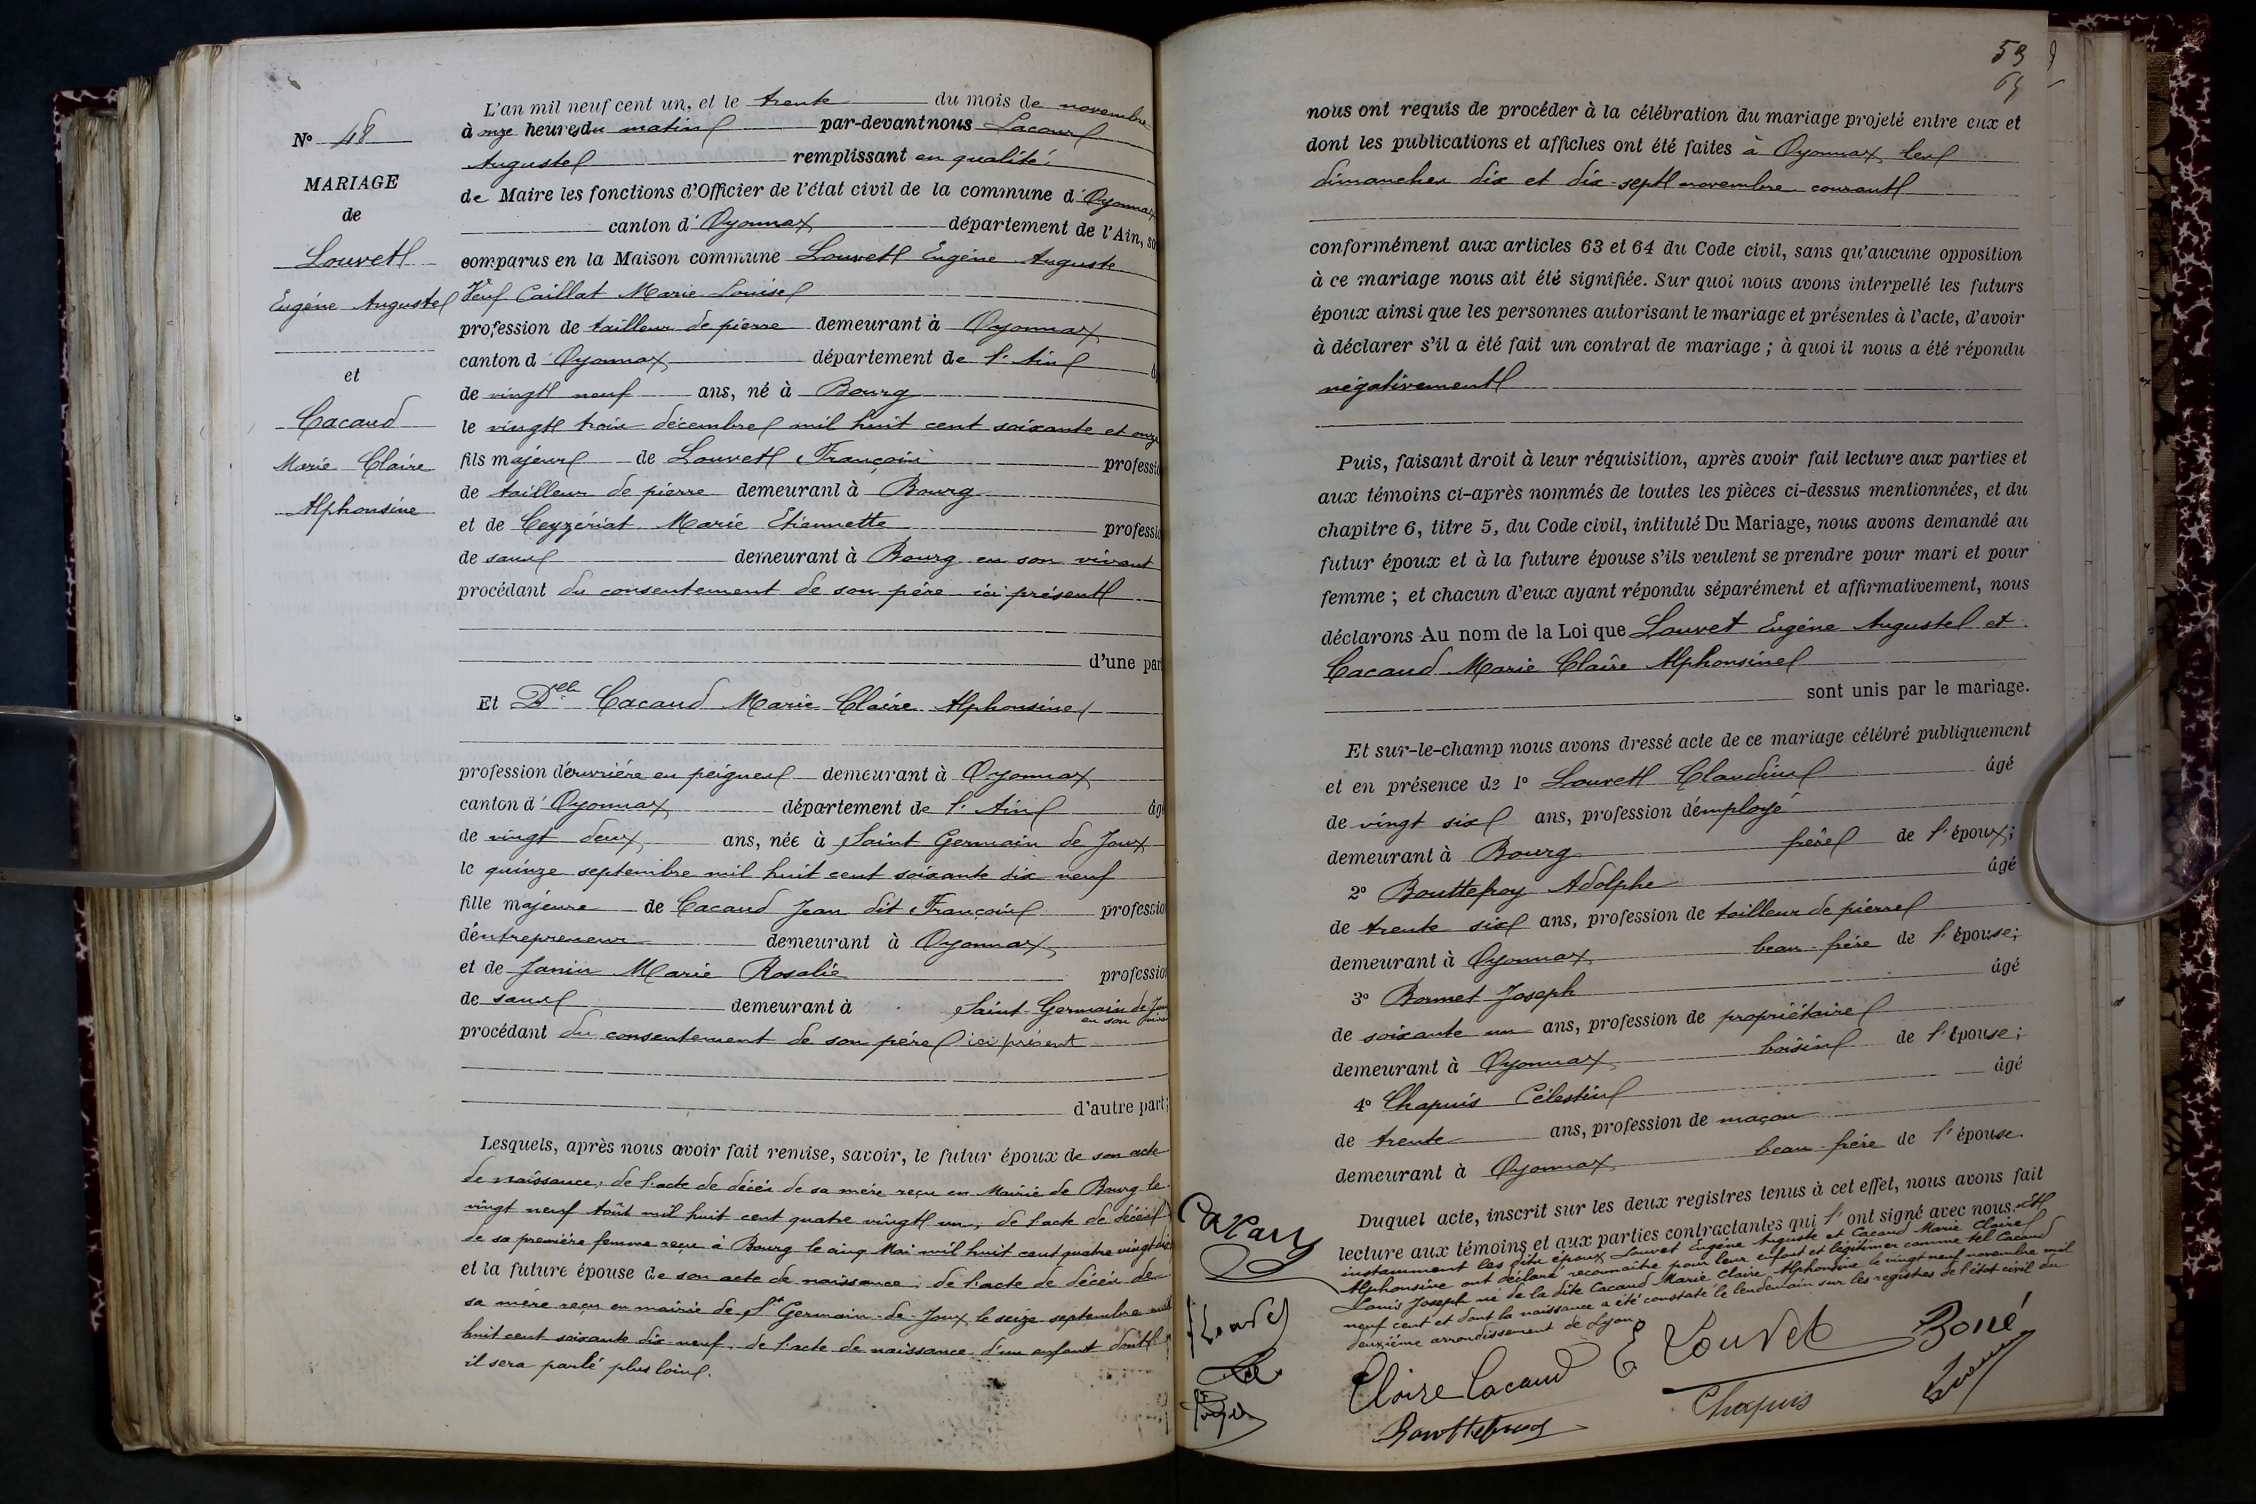 N° 48
MARIAGE
de
Louvet
Eugène Auguste
et
Cacaud
Marie Claire
Alphonsine
L'an mil neuf cent un, et le trente du mois de novembre
à onze heures du matin par-devant nous Lacour
Auguste remplissant en qualité
de Maire les fonctions d'Officier de l'état civil de la commune d'Oyonnax
canton d'Oyonnax département de l'Ain, so
comparus en la Maison commune Louvet Eugène Auguste
Veuf Caillat Marie Louise
profession de tailleur de pierre demeurant à Oyonnax
canton d'Oyonnax département de l'Ain
de vingt neuf ans, né à Bourg
le vingt trois décembre mil huit cent soixante et onze
fils majeur de Louvet François professio
de tailleur de pierre demeurant à Bourg
et de Ceyzériat Marie Etiennette professio
de sans demeurant à Bourg en son vivant
procédant du consentement de son père ici présent
d'une par
Et Delle Cacaud Marie Claire Alphonsine
profession d'ouvrière en peignes demeurant à Oyonnax
canton d'Oyonnax département de l'Ain âgé
de vingt deux ans, née à Saint Germain de Joux
le quinze septembre mil huit cent soixante dix neuf
fille majeure de Cacaud Jean dit François professio
d'entrepreneur demeurant à Oyonnax
et de Janin Marie Rosalie professio
de sans demeurant à Saint-Germain de Joux
en son vivan
procédant du consentement de son père ici présent
d'autre part;
Lesquels, après nous avoir fait remise, savoir, le futur époux de son acte
de naissance; de l'acte de décès de sa mère reçu en Mairie de Bourg le
vingt neuf août mil huit cent quatre vingt un, de l'acte de décès
de sa première femme reçu à Bourg le cinq Mai mil huit cent quatre vingt dix
et la future épouse de son acte de naissance; de l'acte de décès de
sa mère reçu en mairie de St Germain-de-Joux le seize septembre mil
huit cent soixante dix-neuf, de l'acte de naissance d'un enfant dont
il sera parlé plus loin.
53
nous ont requis de procéder à la célébration du mariage projeté entre eux et
dont les publications et affiches ont été faites à Oyonnax les
dimanches dix et dix-sept novembre courant
conformément aux articles 63 et 64 du Code civil, sans qu'aucune opposition
à ce mariage nous ait été signifiée. Sur quoi nous avons interpellé les futurs
époux ainsi que les personnes autorisant le mariage et présentes à l'acte, d'avoir
à déclarer s'il a été fait un contrat de mariage; à quoi il nous a été répondu
négativement
Puis, faisant droit à leur réquisition, après avoir fait lecture aux parties et
aux témoins ci-après nommés de toutes les pièces ci-dessus mentionnées, et du
chapitre 6, titre 5, du Code civil, intitulé Du Mariage, nous avons demandé au
futur époux et à la future épouse s'ils veulent se prendre pour mari et pour
femme; et chacun d'eux ayant répondu séparément et affirmativement, nous
déclarons Au nom de la Loi que Louvet Eugène Auguste et
Cacaud Marie Claire Alphonsine
sont unis par le mariage.
Et sur-le-champ nous avons dressé acte de ce mariage célébré publiquement
et en présence de 1° Louvet Claudius âgé
de vingt six ans, profession d'employé
demeurant à Bourg frère de l'époux;
2° Bouttefroy Adolphe âgé
de trente six ans, profession de tailleur de pierre
demeurant à Oyonnax beau-frère de l'épouse;
3° Bonnet Joseph âgé
de soixante un ans, profession de propriétaire
demeurant à Oyonnax voisin de l'épouse;
4° Chapuis Célestin âgé
de trente ans, profession de maçon
demeurant à Oyonnax beau-frère de l'épouse.
Duquel acte, inscrit sur les deux registres tenus à cet effet, nous avons fait
lecture aux témoins et aux parties contractantes qui l'ont signé avec nous. Et
instamment les dits époux Louvet Eugène Auguste et Cacaud Marie Claire
Alphonsine ont déclaré reconnaître pour leur enfant et légitimer comme tel Cacaud
Louis Joseph né de la dite Cacaud Marie Claire Alphonsine le vingt neuf novembre mil
neuf cent et dont la naissance a été constaté le lendemain sur les registres de l'état civil du
deuxième arrondissement de Lyon
Louvet
Claire Cacaud E Louvet
Bouttefroy Chapuis